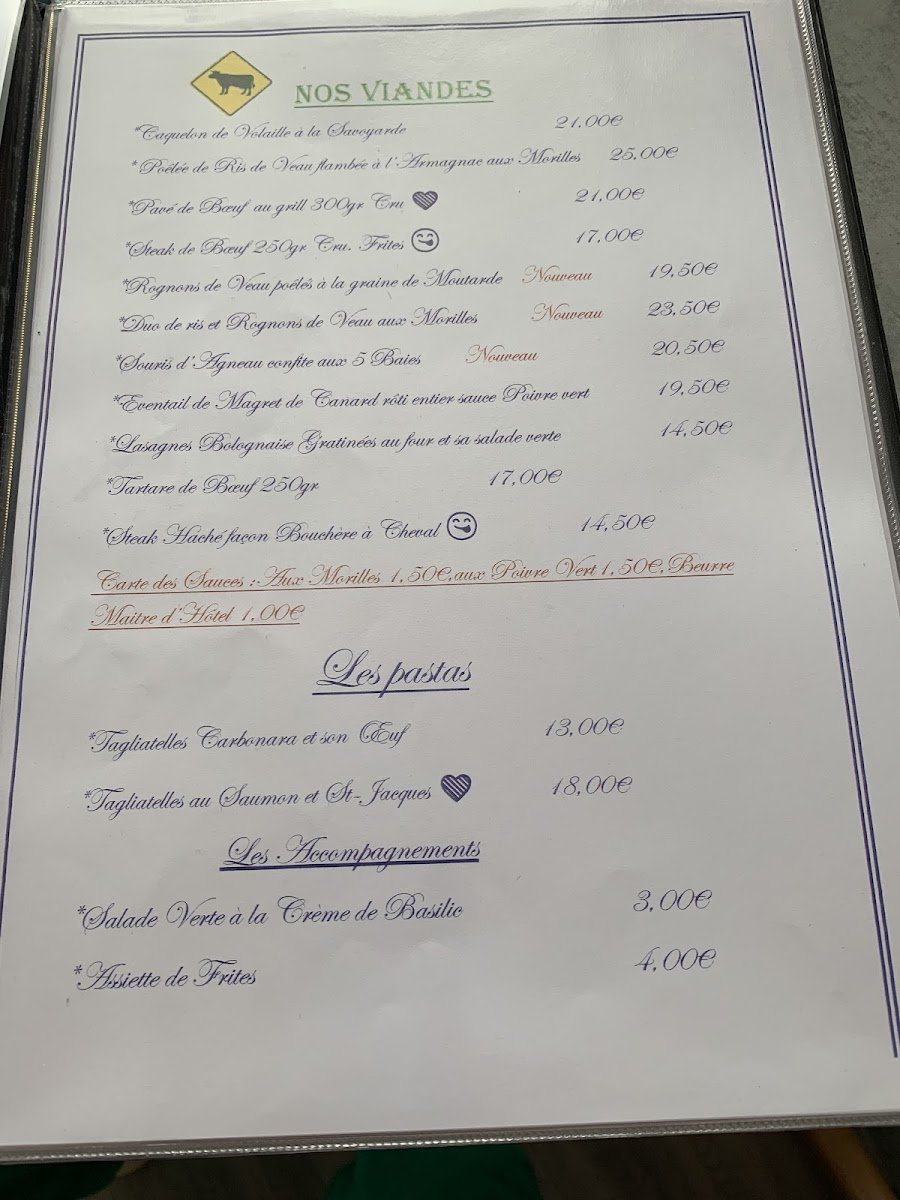 NOS VIANDES
*Caquelon de Volaille à la Savoyarde 21,00€
*Poêlée de Ris de Veau flambée à l'Armagnac aux Morilles 25,00€
*Pavé de Bœuf au grill 300gr Cru 21,00€
*Steak de Bœuf 250gr Cru. Frites 17,00€
*Rognons de Veau poêlés à la graine de Moutarde Nouveau 19,50€
*Duo de ris et Rognons de Veau aux Morilles Nouveau 23,50€
*Souris d'Agneau confite aux 5 Baies Nouveau 20,50€
*Eventail de Magret de Canard rôti entier sauce Poivre vert 19,50€
*Lasagnes Bolognaise Gratinées au four et sa salade verte 14,50€
*Tartare de Bœuf 250gr 17,00€
*Steak Haché façon Bouchère à Cheval 14,50€
Carte des Sauces :-Aux Morilles 1,50€,aux Poivre Vert 1,50€, Beurre
Maitre d'Hôtel 1,00€
Les pastas
*Tagliatelles Carbonara et son Œuf 13,00€
*Tagliatelles au Saumon et St-Jacques 18,00€
Les Accompagnements
*Salade Verte à la Crème de Basilic 3,00€
*Assiette de Frites 4,00€